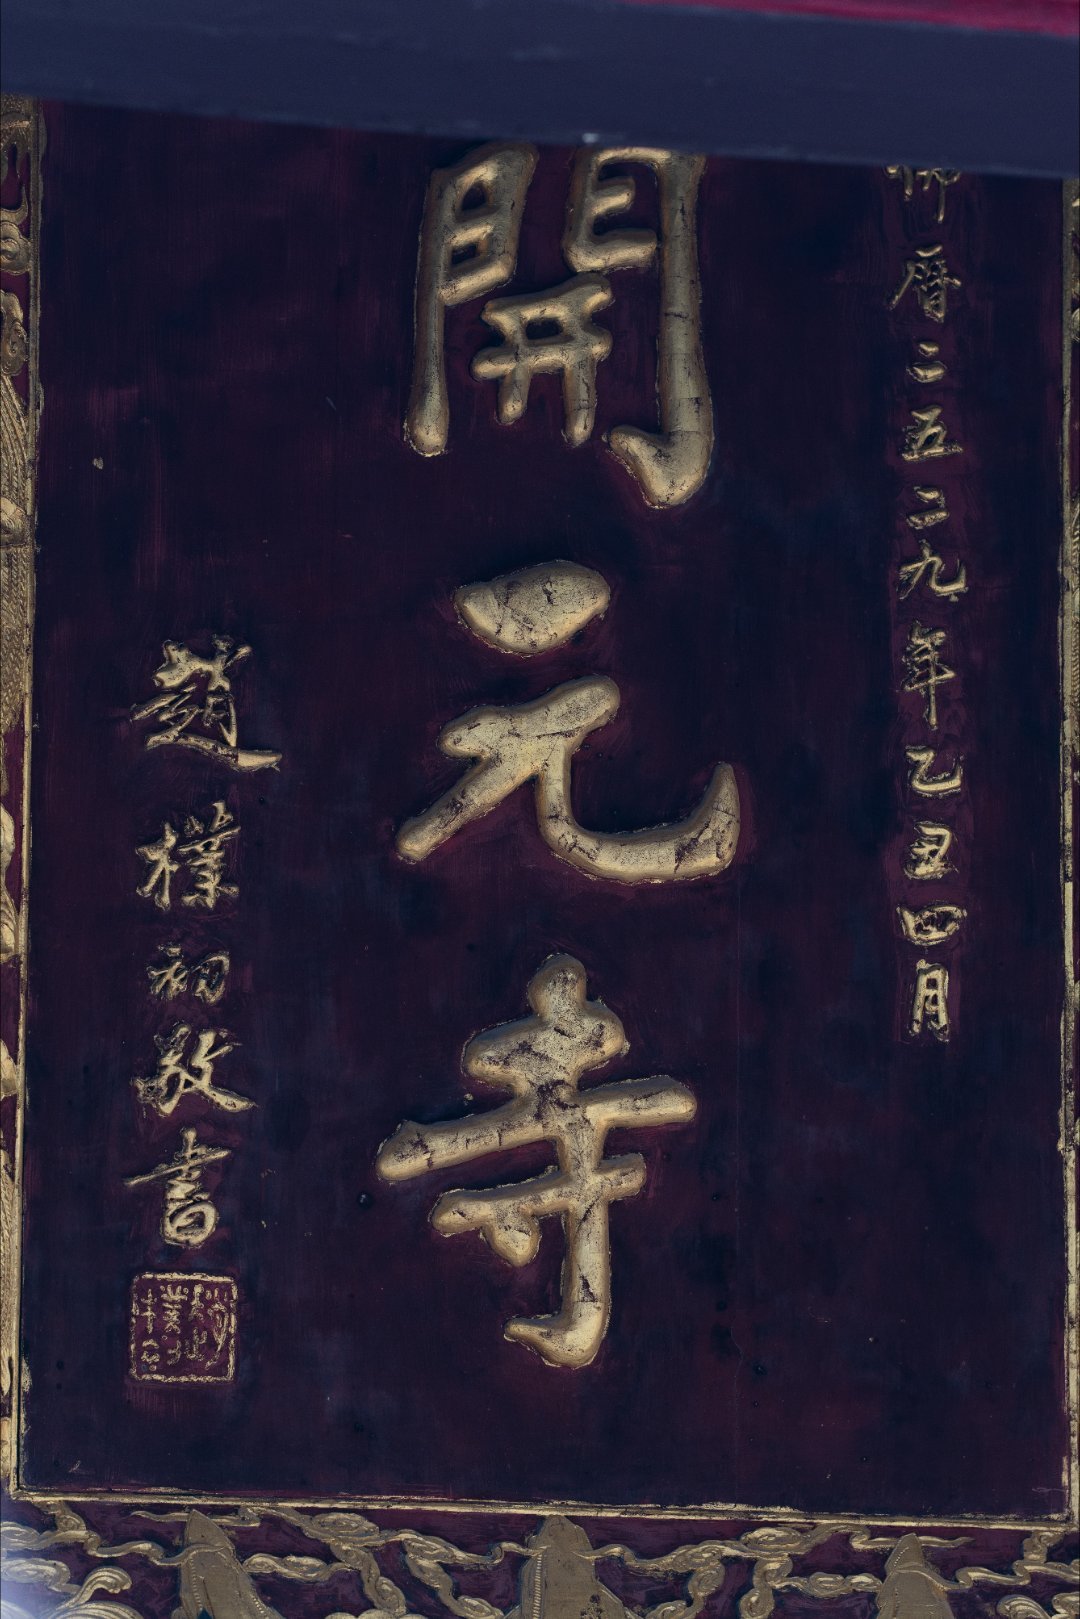 佛曆二五二九年乙丑四月
開元寺
趙樸初敬書